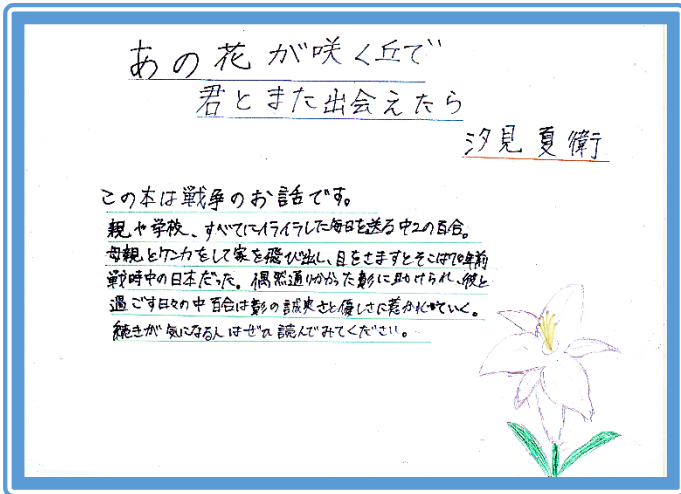 あの花が咲く丘で
君とまた出会えたら
汐見 夏衛
この本は戦争のお話です。
親や学校、すべてにイライラした毎日を送る中2の百合。
母親とケンカをして家を飛び出し、目をさますとそこは70年前
戦時中の日本だった。偶然通りかかった彰に助けられ、彼と
過ごす日々の中百合は彰の誠実さと優しさに惹かれていく。
続きが気になる人はぜひ読んでみてください。